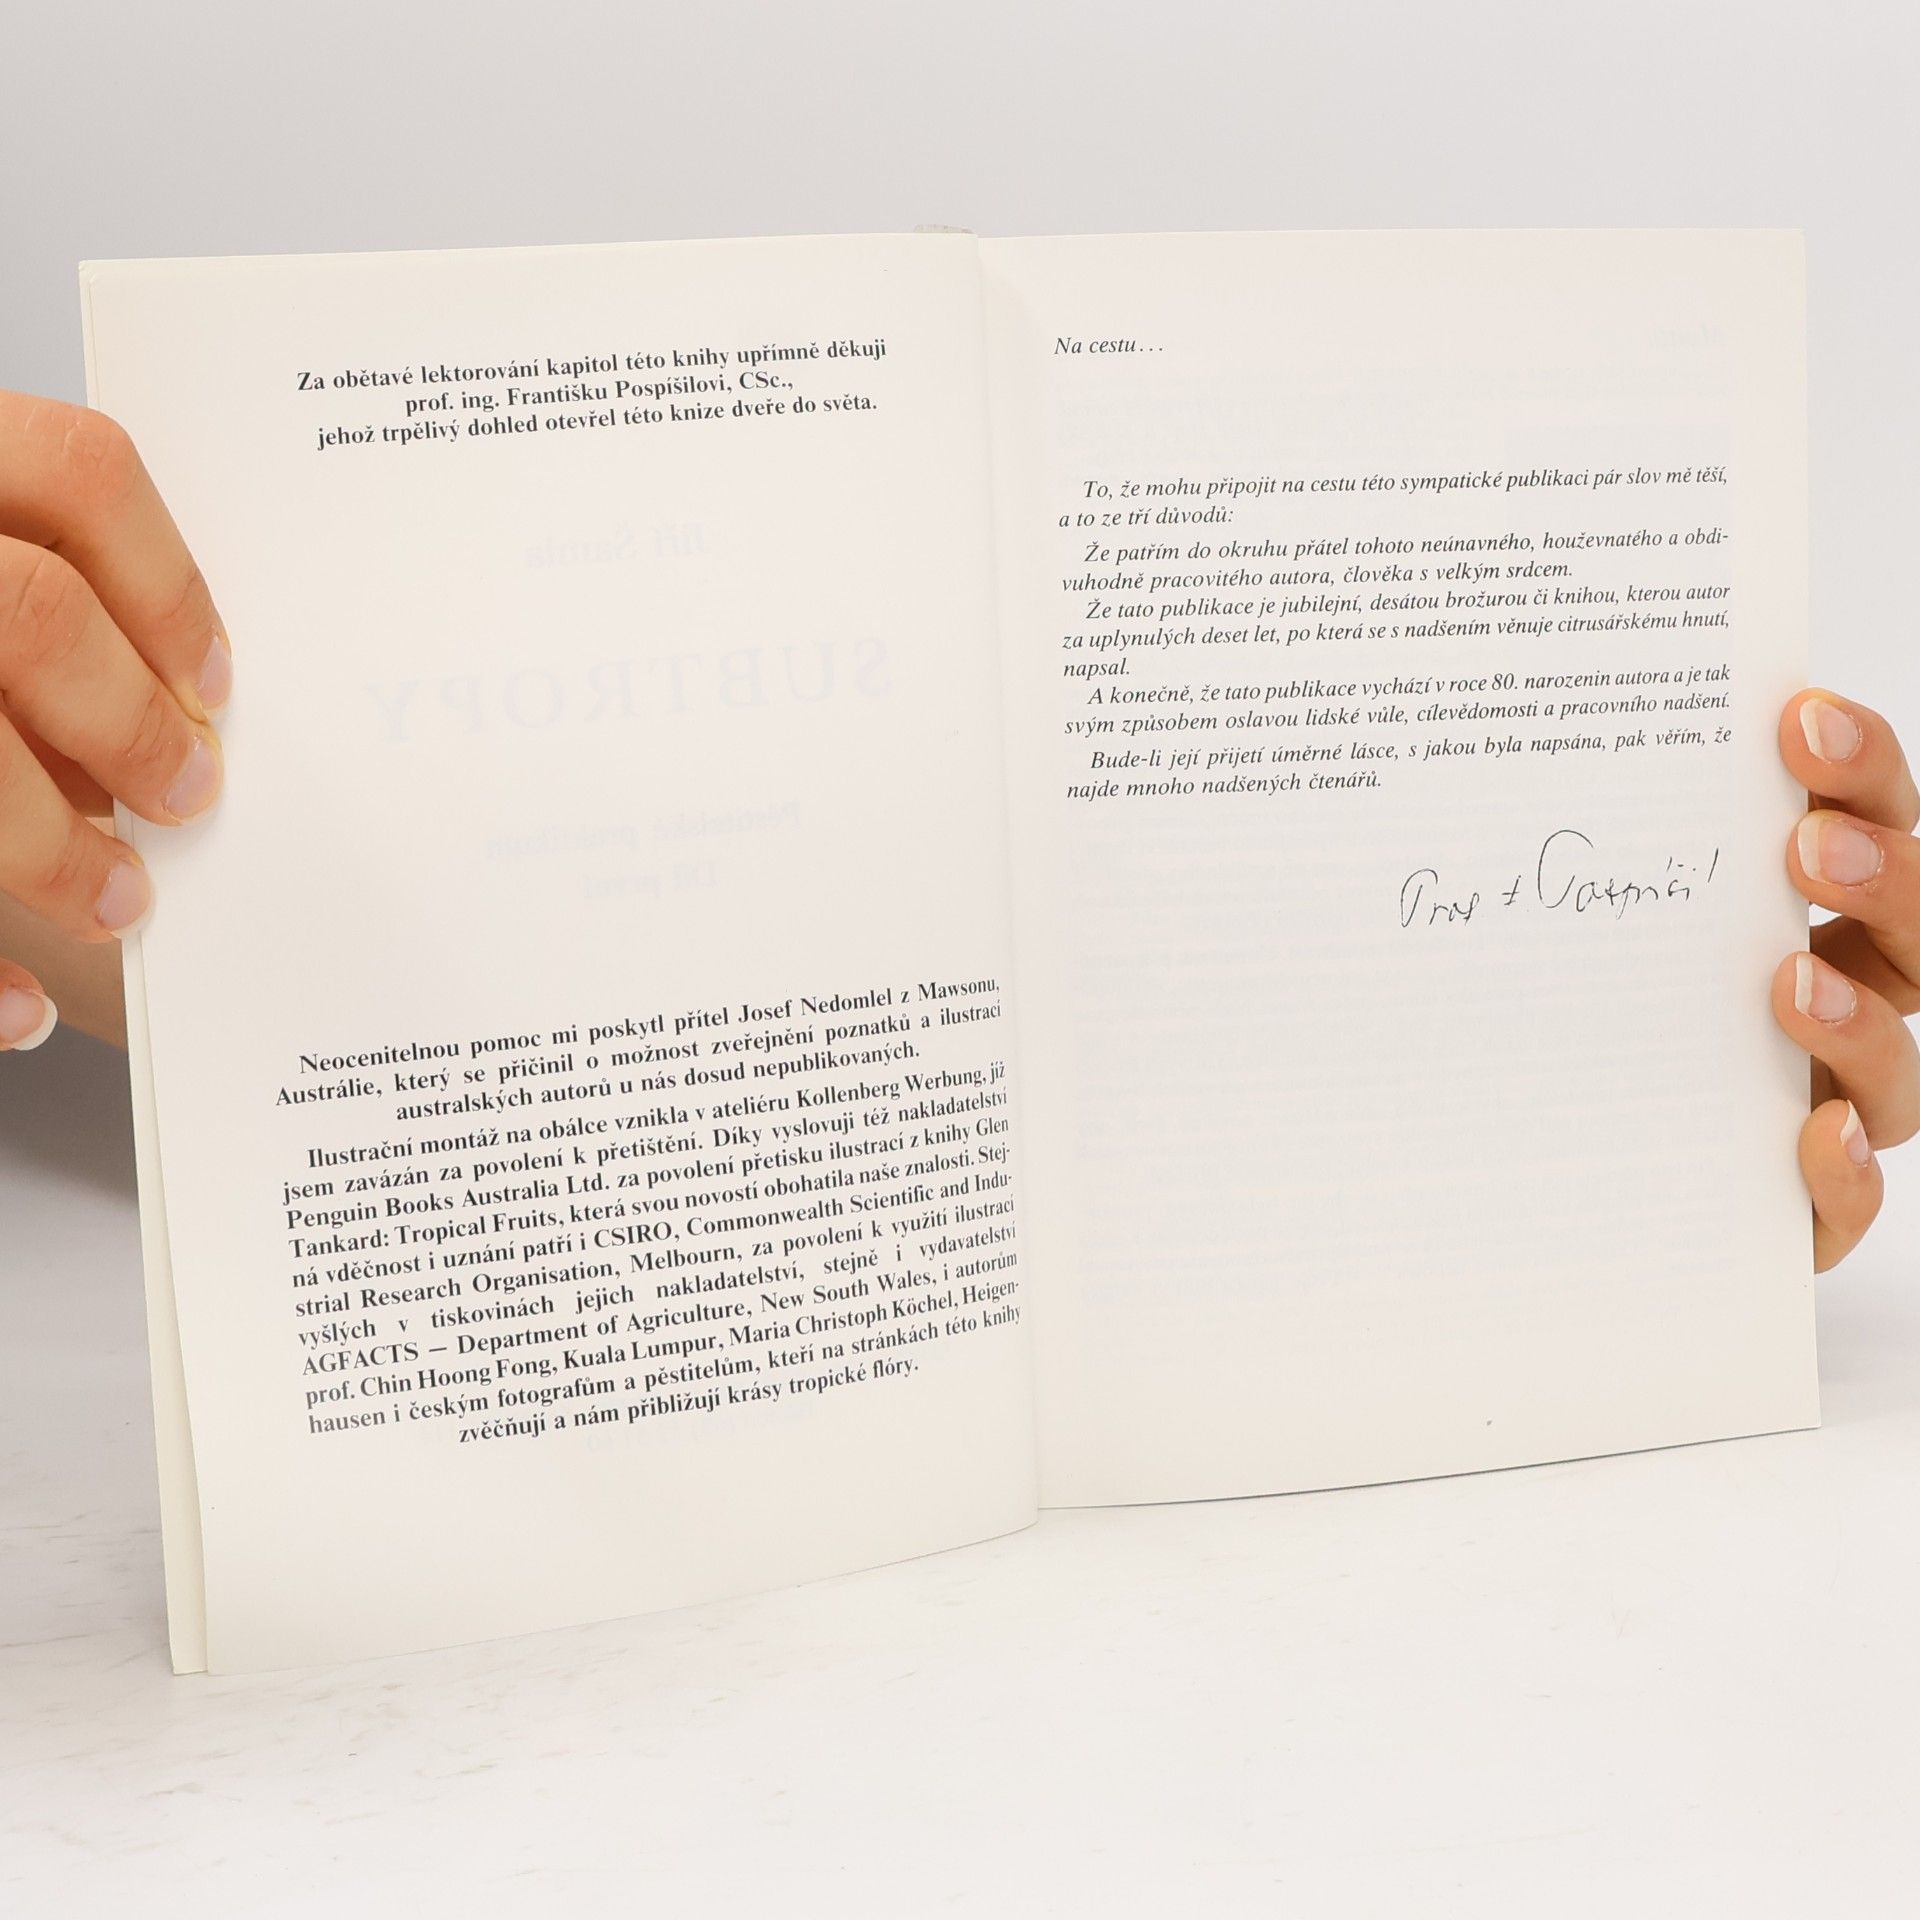 Za obětavé lektorování kapitol této knihy upřímně děkuji
prof. ing. Františku Pospíšilovi, CSc.,
jehož trpělivý dohled otevřel této knize dveře do světa.
Jiří Šamla
SUBTROPY
Pěstitelské praktikum
Díl první
Neocenitelnou pomoc mi poskytl přítel Josef Nedomlel z Mawsonu,
Austrálie, který se přičinil o možnost zveřejnění poznatků a ilustrací
australských autorů u nás dosud nepublikovaných.
Ilustrační montáž na obálce vznikla v ateliéru Kollenberg Werbung, jíž
jsem zavázán za povolení k přetištění. Díky vyslovuji též nakladatelství
Penguin Books Australia Ltd. za povolení přetisku ilustrací z knihy Glen
Tankard: Tropical Fruits, která svou novostí obohatila naše znalosti. Stej-
ná vděčnost i uznání patří i CSIRO, Commonwealth Scientific and Indu-
strial Research Organisation, Melbourn, za povolení k využití ilustrací
vyšlých v tiskovinách jejich nakladatelství, stejně i vydavatelství
AGFACTS — Department of Agriculture, New South Wales, i autorům
prof. Chin Hoong Fong, Kuala Lumpur, Maria Christoph Köchel, Heigen-
hausen i českým fotografům a pěstitelům, kteří na stránkách této knihy
zvěčňují a nám přibližují krásy tropické flóry.
Na cestu...
To, že mohu připojit na cestu této sympatické publikaci pár slov mě těší,
a to ze tří důvodů:
Že patřím do okruhu přátel tohoto neúnavného, houževnatého a obdi-
vuhodně pracovitého autora, člověka s velkým srdcem.
Že tato publikace je jubilejní, desátou brožurou či knihou, kterou autor
za uplynulých deset let, po která se s nadšením věnuje citrusářskému hnutí,
napsal.
A konečně, že tato publikace vychází v roce 80. narozenin autora a je tak
svým způsobem oslavou lidské vůle, cílevědomosti a pracovního nadšení.
Bude-li její přijetí úměrné lásce, s jakou byla napsána, pak věřím, že
najde mnoho nadšených čtenářů.